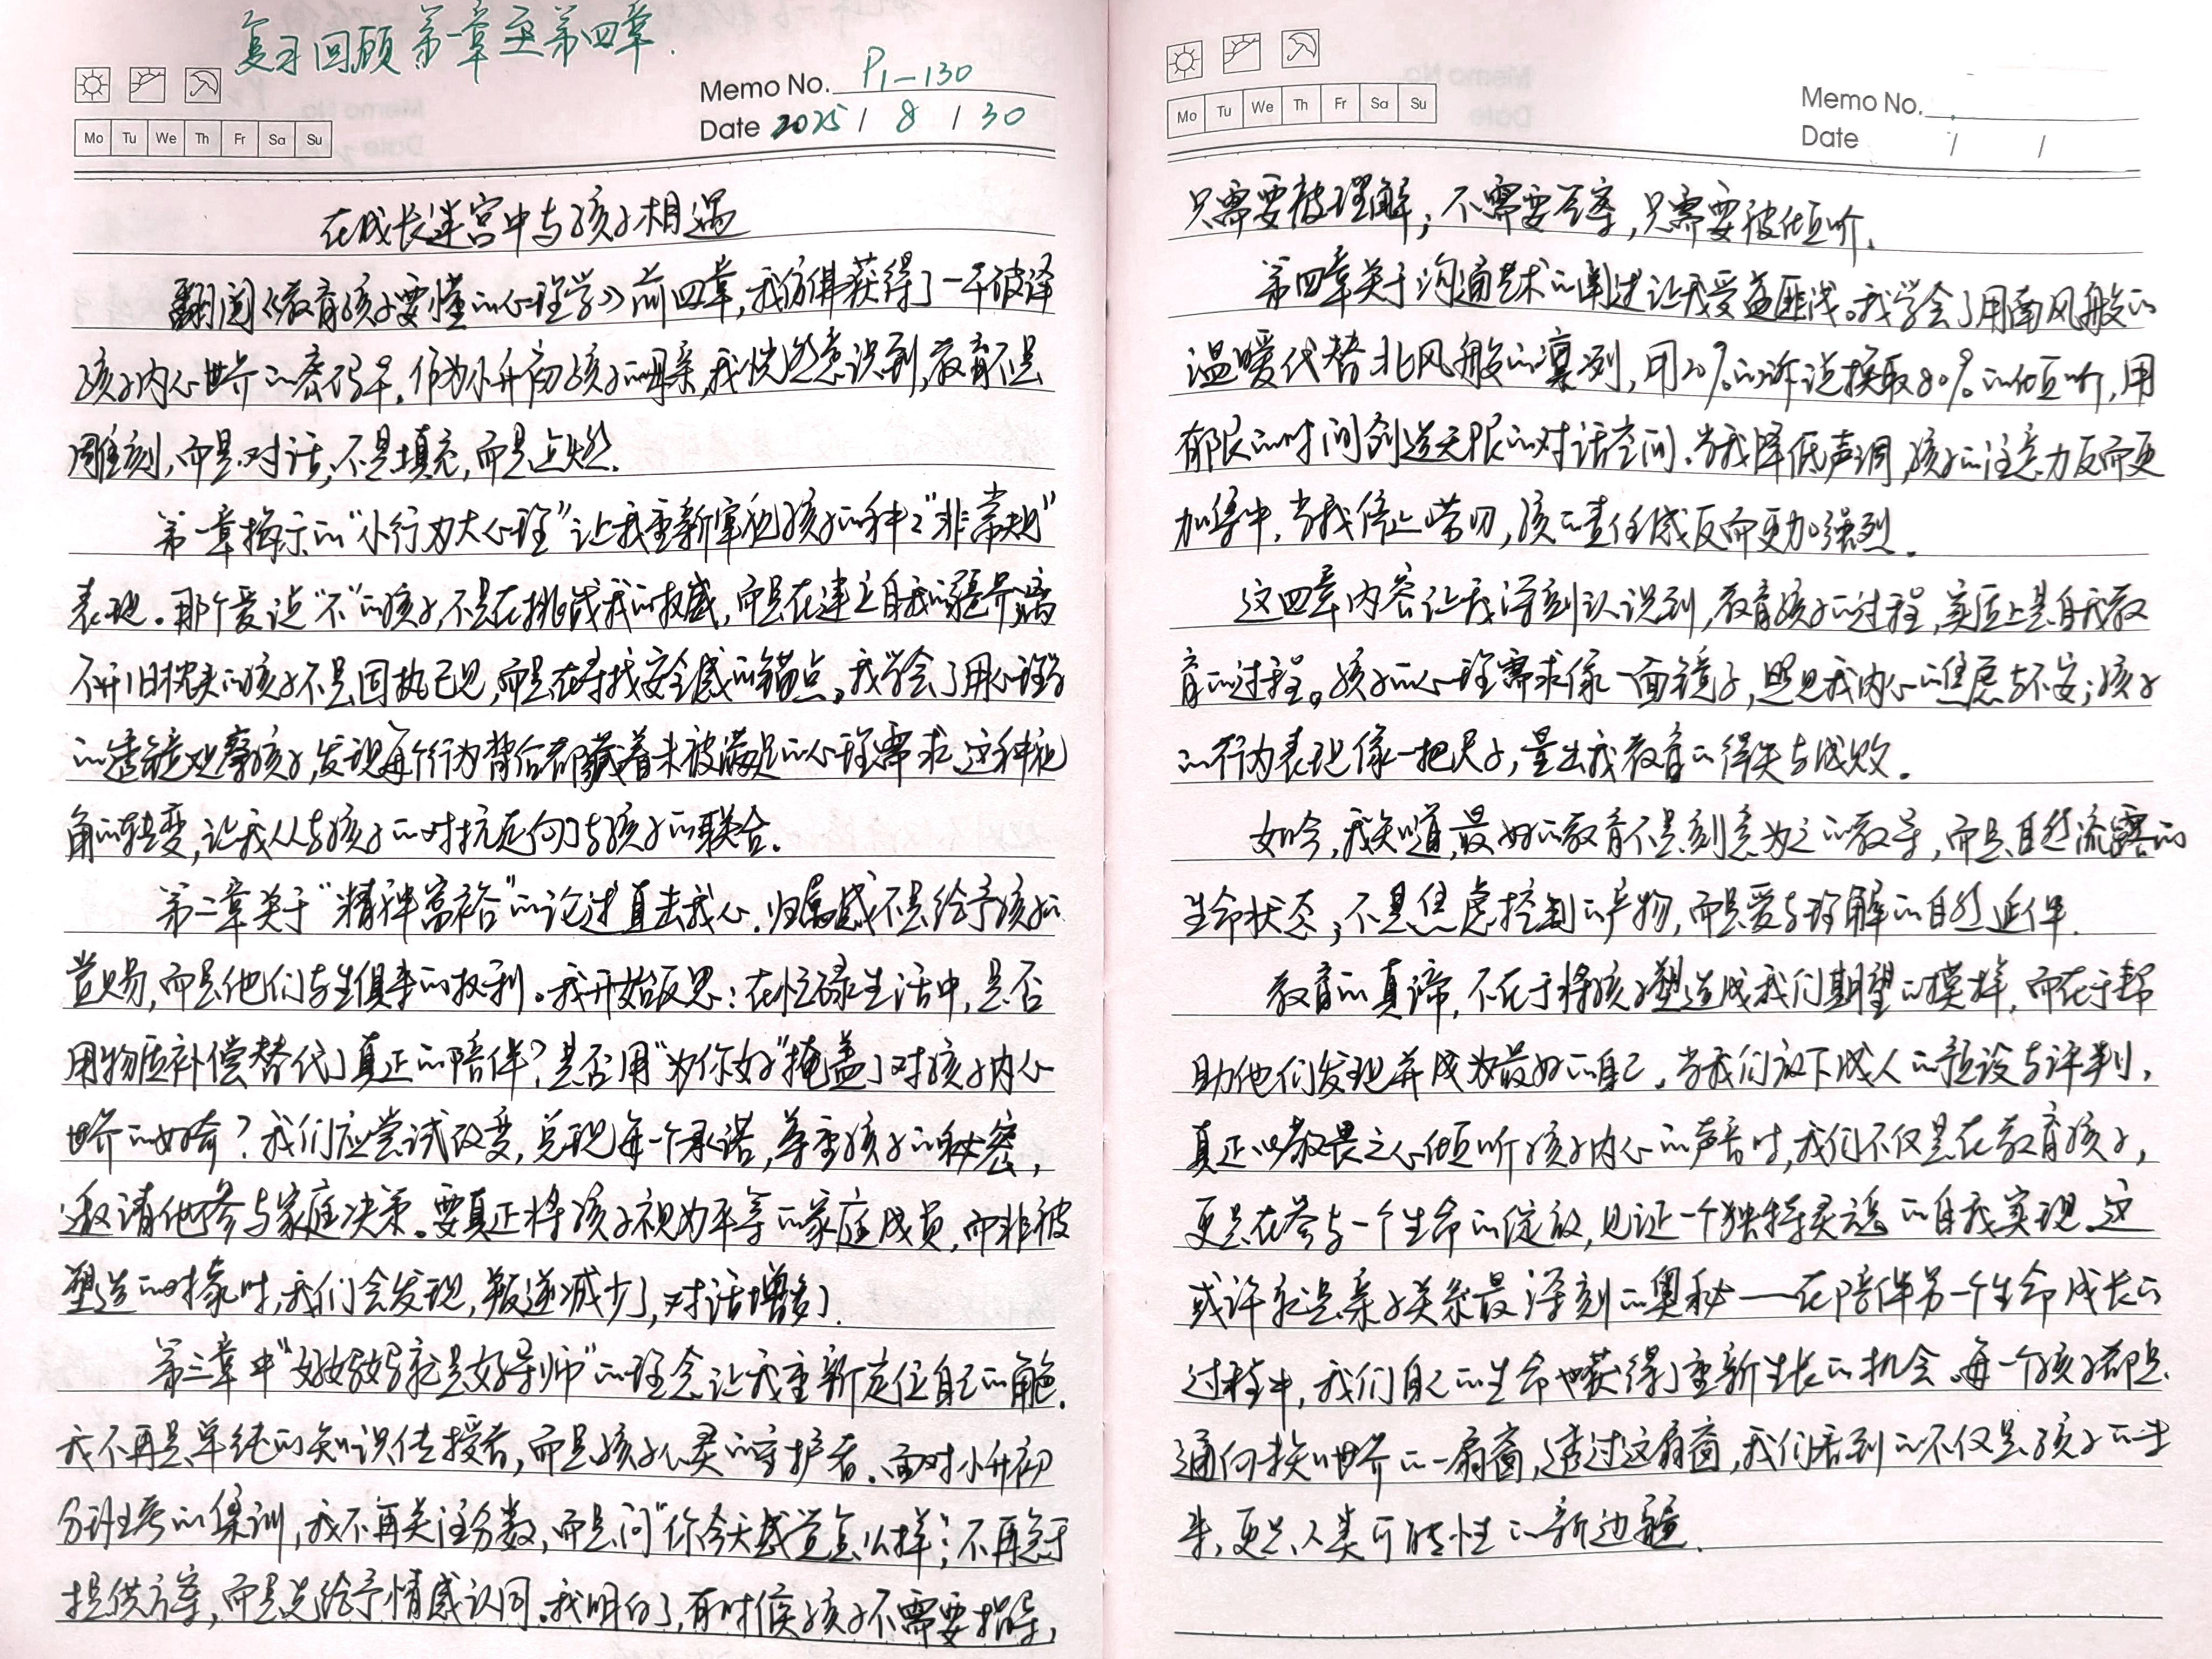 复习回顾第一章至第四章.
Memo No. P1-130
Mo Tu We Th Fr Sa Su
Date 2025 / 8 / 30
在成长迷宫中与孩子相遇
翻阅《教育孩子要懂的心理学》前四章,我仿佛获得了一本破译
孩子内心世界的密码本。作为小升初孩子的母亲,我恍然意识到,教育不是
雕刻,而是对话;不是填充,而是点燃.
第一章揭示的“小行为大心理”让我重新审视孩子的种种“非常规”
表现。那个爱说“不”的孩子,不是在挑战我的权威,而是在建立自我的疆界;离
不开旧枕头的孩子不是固执己见,而是在寻找安全感的锚点。我学会了用心理学
的透镜观察孩子,发现每个行为背后都藏着未被满足的心理需求.这种视
角的转变,让我从与孩子的对抗走向了与孩子的联合.
第二章关于“精神富裕”的论述直击我心.归属感不是给予孩子的
赏赐,而是他们与生俱来的权利。我开始反思:在忙碌生活中,是否
用物质补偿替代了真正的陪伴?是否用“为你好”掩盖了对孩子内心
世界的好奇?我们应尝试改变,兑现每一个承诺,尊重孩子的秘密,
邀请他参与家庭决策.要真正将孩子视为平等的家庭成员,而非被
塑造的对象时,我们会发现,叛逆减少了,对话增多了.
第三章中“好妈妈就是好导师”的理念让我重新定位自己的角色.
我不再是单纯的知识传授者,而是孩子心灵的守护者.面对小升初
分班考的集训,我不再关注分数,而是问“你今天感觉怎么样;不再急于
提供方案,而是先给予情感认同.我明白了,有时候孩子不需要指导,
Memo No.
Mo Tu We Th Fr Sa Su
Date / /
只需要被理解;不需要答案,只需要被倾听.
第四章关于沟通艺术的阐述让我受益匪浅。我学会了用南风般的
温暖代替北风般的凛冽,用20%的诉说换取80%的倾听,用
有限的时间创造无限的对话空间.当我降低声调,孩子的注意力反而更
加集中,当我停止唠叨,孩的责任感反而更加强烈.
这四章内容让我深刻认识到,教育孩子的过程,实质上是自我教
育的过程。孩子的心理需求像一面镜子,照见我内心的焦虑与不安;孩子
的行为表现像一把尺子,量出我教育的得失与成败.
如今,我知道,最好的教育不是刻意为之的教导,而是自然流露的
生命状态;不是焦虑控制的产物,而是爱与理解的自然延伸.
教育的真谛,不在于将孩子塑造成我们期望的模样,而在于帮
助他们发现并成为最好的自己.当我们放下成人的预设与评判,
真正以敬畏之心倾听孩子内心的声音时,我们不仅是在教育孩子,
更是在参与一个生命的绽放,见证一个独特灵魂的自我实现.这
或许就是亲子关系最深刻的奥秘——在陪伴另一个生命成长的
过程中,我们自己的生命也获得了重新生长的机会.每一个孩子都是
通向未知世界的一扇窗,透过这扇窗,我们看到的不仅是孩子的未
来,更是人类可能性的新边疆.